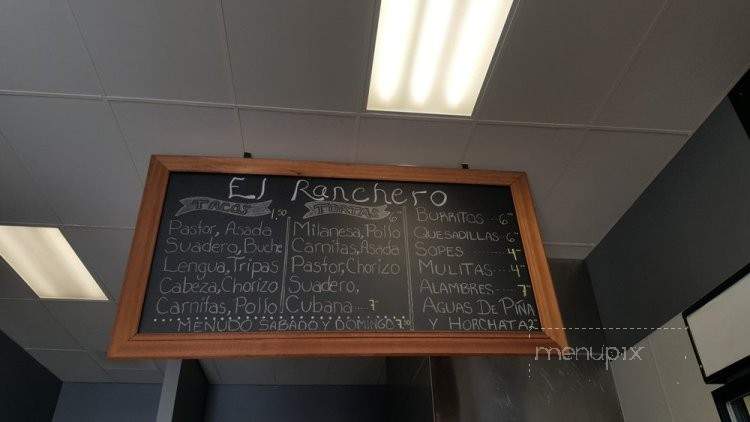 El Ranchero
TACOS 1.50
Pastor, Asada
Suadero, Buche
Lengua, Tripas
Cabeza, Chorizo
Carnitas, Pollo
TORTAS 6
Milanesa, Pollo
Carnitas, Asada
Pastor, Chorizo
Suadero,
Cubana 7
BURRITOS 6
QUESADILLAS 6
SOPES 4
MULITAS 4
ALAMBRES 7
AGUAS DE PIÑA
Y HORCHATA 2
MENUDO SABADO Y DOMINGO 7
menupix